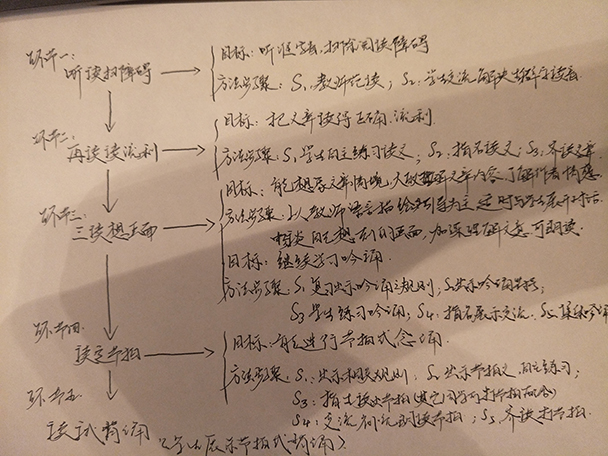 环节一:
听读扫障碍
目标: 听准字音, 扫除阅读障碍
方法步骤: S₁ 教师范读; S₂: 学生交流解决
环节二:
再读读流利
目标: 把文章读得正确、流利.
方法步骤: S₁ 学生自主练习读文; S₂: 指名读文; S₃: 齐读文章
环节三:
三读想画面
目标: 能想象文章情境, 大致理解文章内容, 了解作者情感.
方法步骤: 以教师语言描绘引导为主, 适时与学生展开对话
想到的画面, 加深理解文意, 可朗读.
目标: 继续学习吟诵.
方法步骤: S₁ 复习出示吟诵之规则; S₂ 出示吟诵
S₃ 学生练习吟诵; S₄: 指名展示交流. S₅
环节四:
读定节拍
目标: 能进行节拍式念诵.
方法步骤: S₁: 出示相关规则; S₂ 出示节拍文, 自主练习;
S₃: 指生读出节拍(其它同学可打节拍配合)
S₄: 交流 读节拍; S₅ 齐读打节拍.
环节五:
读试背诵 (学生展示节拍式背诵)